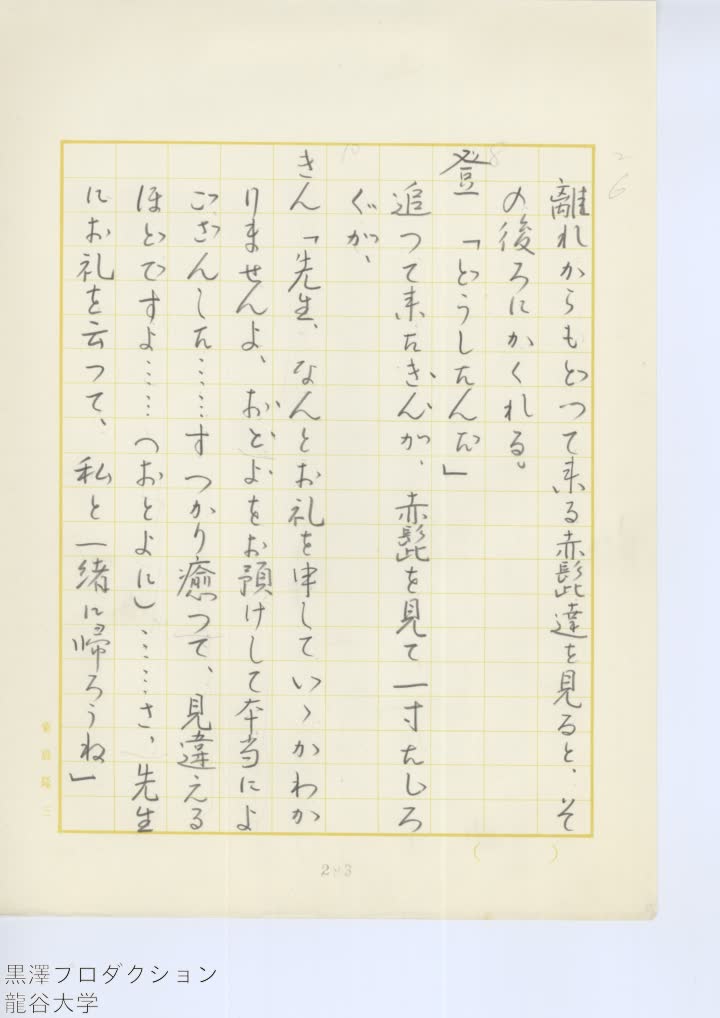 離れからもどつて来る赤髭達を見ると、そ
の後ろにかくれる。
登　「どうしたんだ」
追つて来たきんが、赤髭を見て一寸たじろ
ぐが、
きん「先生、なんとお礼を申していゝかわか
りませんよ、おとよをお預けして本当によ
ござんした……すつかり癒つて、見違える
ほどですよ……（おとよに）……さ、先生
にお礼を云つて、私と一緒に帰ろうね」
26
(　　)
293
黒澤プロダクション
龍谷大学